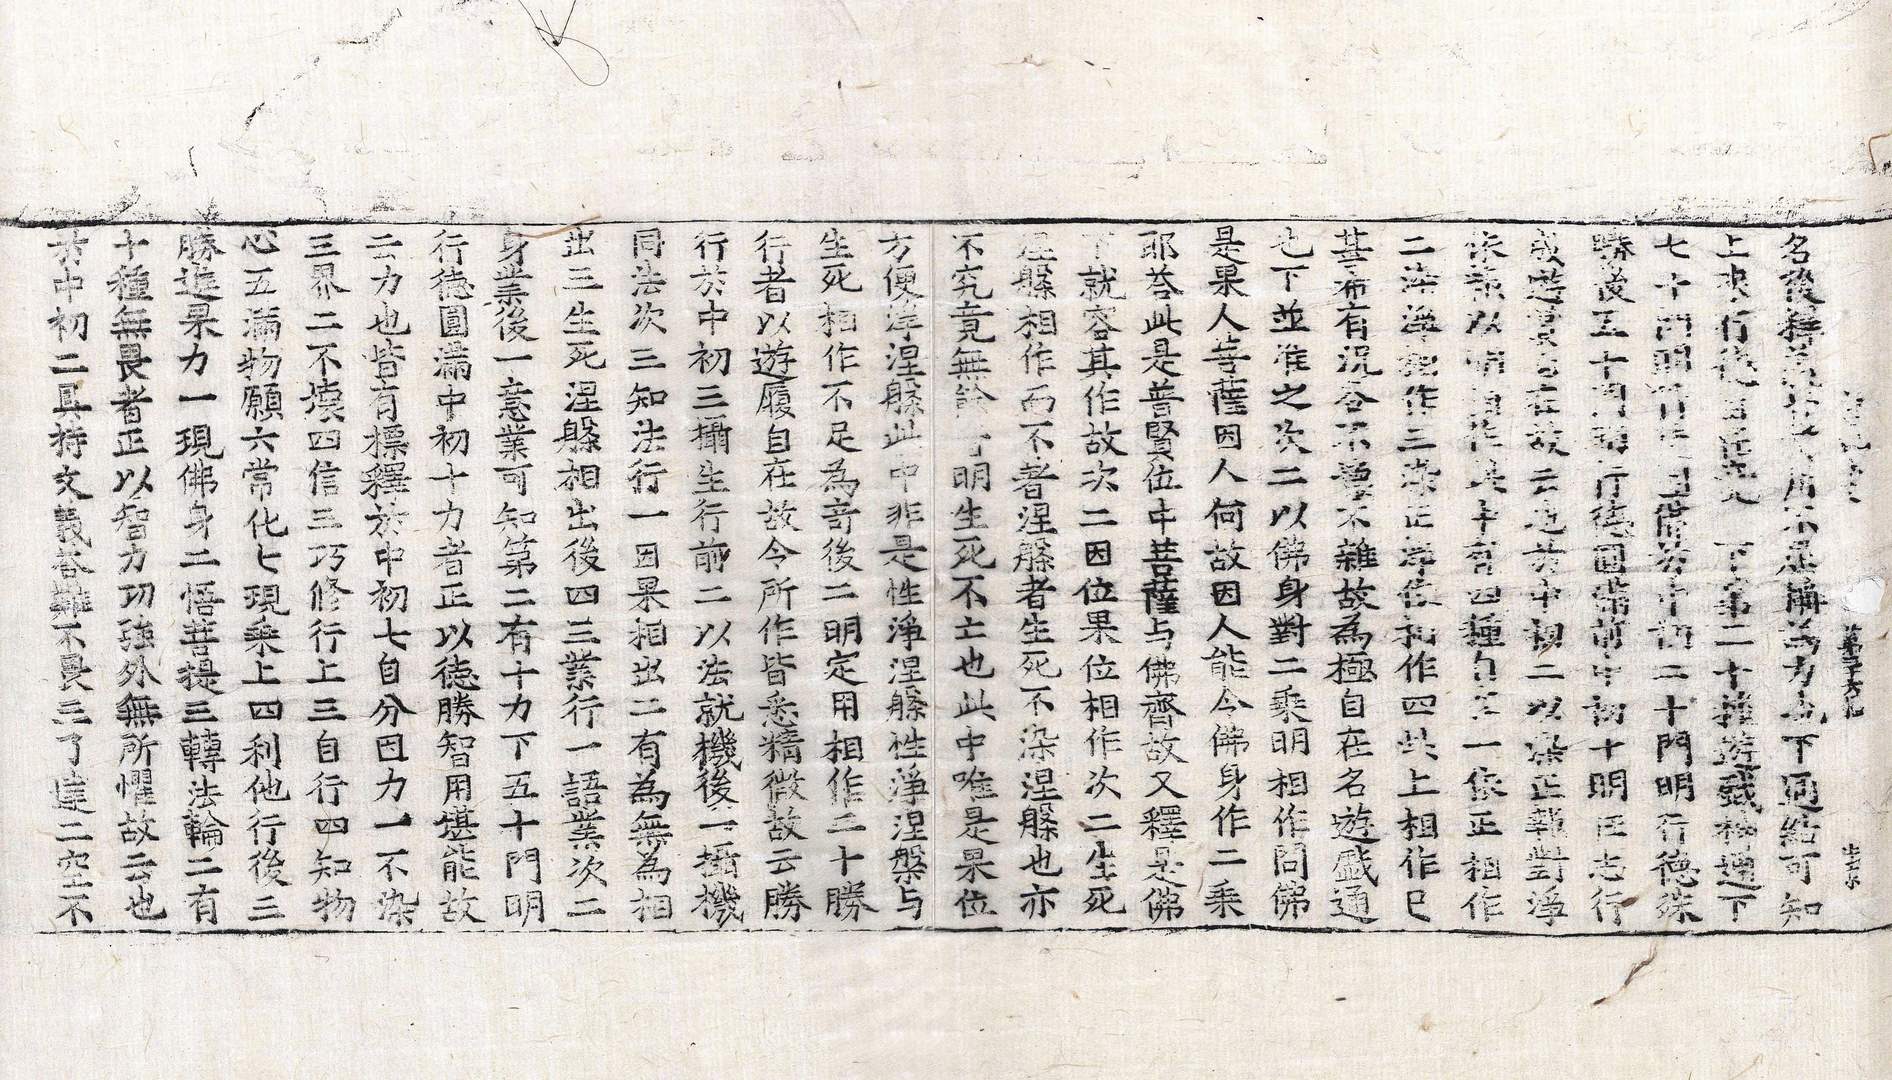 名後釋 所不 為力也下通結可知
上來行德 下第二十種遊戲神通下
七十門明行 階 初二十門明行德殊
勝後五十門明行德圓滿前中初十明正志行
戲遊 自在故云也於中初二以染正報對淨
依業以 相作 中有四種 一依正相作
二染淨相作三染正淨依相作四共上相作已
甚希有況容不 不雜故為極自在名遊戲通
也下並准之次二以佛身對二乘明相作問佛
是果人菩薩因人何故因人能令佛身作二乘
耶荅此是普賢位中菩薩与佛齊故又釋是佛
下就容其作故次二因位果位相作次二生死
涅槃相作而不著涅槃者生死不染涅槃也亦
不究竟無餘 明生死不亡也此中唯是果位
方便淨涅槃此中非是性淨涅槃性淨涅槃与
生死相作不足為奇後二明定用相作二十勝
行者以遊履自在故令所作皆悉精微故云勝
行於中初三攝生行前二以法就機後一攝機
同法次三知法行一因果相出二有為無為相
出三生死涅槃相出後四三業行一語業次二
身業後一意業可知第二有十力下五十門明
行德圓滿中初十力者正以德勝智用堪能故
云力也皆有標釋於中初七自分因力一不染
三界二不壞四信三巧修行上三自行四知物
心五滿物願六常化七現乘上四利他行後三
勝進果力一現佛身二悟菩提三轉法輪二有
十種無畏者正以智力功強外無所懼故云也
於中初二具持文義荅難不畏三了達二空不